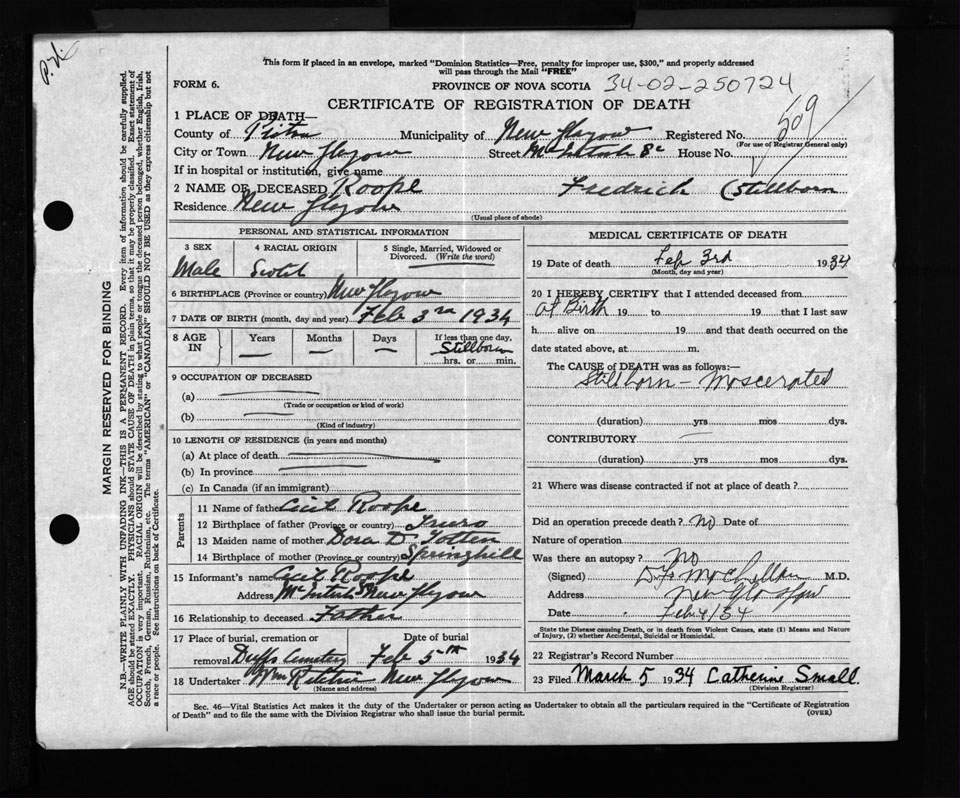 P.H.
This form if placed in an envelope, marked "Dominion Statistics—Free, penalty for improper use, $300," and properly addressed
will pass through the Mail "FREE"
FORM 6.
PROVINCE OF NOVA SCOTIA 34-02-250724
CERTIFICATE OF REGISTRATION OF DEATH
1 PLACE OF DEATH—
509
County of Pictou Municipality of New Glasgow Registered No.
(For use of Registrar General only)
City or Town New Glasgow Street McIntosh St House No.
If in hospital or institution, give name
2 NAME OF DECEASED Roope Fredrich (Stillborn
Residence New Glasgow
(Usual place of abode)
PERSONAL AND STATISTICAL INFORMATION
3 SEX 4 RACIAL ORIGIN 5 Single, Married, Widowed or
Divorced. (Write the word)
Male Scotch
6 BIRTHPLACE (Province or country) New Glasgow
7 DATE OF BIRTH (month, day and year) Feb 3rd 1934
8 AGE
IN
Years Months Days
If less than one day,
Stillborn
hrs. or min.
9 OCCUPATION OF DECEASED
(a)
(Trade or occupation or kind of work)
(b)
(Kind of industry)
10 LENGTH OF RESIDENCE (in years and months)
(a) At place of death
(b) In province
(c) In Canada (if an immigrant)
Parents
11 Name of father Cecil Roope
12 Birthplace of father (Province or country) Truro
13 Maiden name of mother Dora D. Totten
14 Birthplace of mother (Province or country) Springhill
15 Informant's name Cecil Roope
Address McIntosh St New Glasgow
16 Relationship to deceased Father
17 Place of burial, cremation or Date of burial
removal Duffs Cemetery Feb 5th 1934
18 Undertaker Wm Ritchie New Glasgow
(Name and address)
MEDICAL CERTIFICATE OF DEATH
19 Date of death Feb 3rd 1934
(Month, day and year)
20 I HEREBY CERTIFY that I attended deceased from
at Birth 19 to 19 that I last saw
h alive on 19 and that death occurred on the
date stated above, at m.
The CAUSE of DEATH was as follows:—
Stillborn – Mascerated
(duration) yrs mos dys.
CONTRIBUTORY
(duration) yrs mos dys.
21 Where was disease contracted if not at place of death?
Did an operation precede death? No Date of
Nature of operation
Was there an autopsy? No
(Signed) M.D.
Address New Glasgow
Date Feb 4/34
State the Disease causing Death, or in death from Violent Causes, state (1) Means and
Nature of Injury, (2) whether Accidental, Suicidal or Homicidal.
22 Registrar's Record Number
23 Filed March 5 1934 Catherine Small.
(Division Registrar)
Sec. 46—Vital Statistics Act makes it the duty of the Undertaker or person acting as Undertaker to obtain all the particulars required in the "Certificate of Registration
of Death" and to file the same with the Division Registrar who shall issue the burial permit.
(OVER)
MARGIN RESERVED FOR BINDING
N.B.—WRITE PLAINLY WITH UNFADING INK—THIS IS A PERMANENT RECORD. Every item of information should be carefully supplied.
AGE should be stated EXACTLY. PHYSICIANS should STATE CAUSE OF DEATH in plain terms, so that it may be properly classified. Exact statement of
OCCUPATION is very important. RACIAL ORIGIN will be described by stating to what people or tongue the deceased person belonged, whether English, Irish,
Scotch, French, German, Russian, Ruthenian, etc. The terms "AMERICAN" or "CANADIAN" SHOULD NOT BE USED as they express citizenship but not
a race or people. See instructions on back of Certificate.